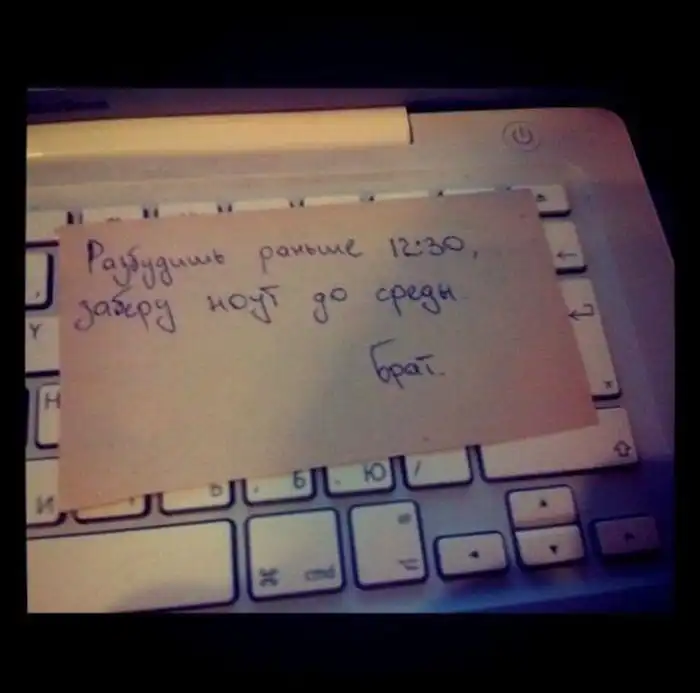 Разбудишь раньше 12:30,
заберу ноут до среды.
Брат.
Н
И
Б
Ю
/
cmd